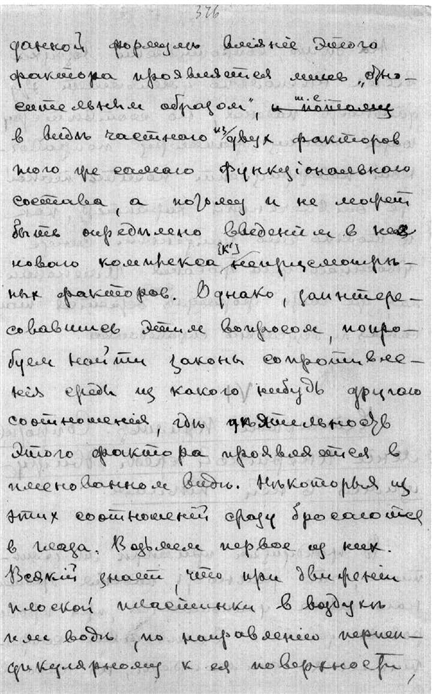 376
данной формулѣ вліяніе этого
фактора проявляется лишь „отно-
сительнымъ образомъ", т.е.
въ видѣ частнаго изъ двухъ факторовъ
того же самаго функціональнаго
состава, а потому и не можетъ
быть опредѣлено введеніемъ въ нее
новаго комплекса [К'] непредусмотрѣн-
ныхъ факторовъ. Однако, заинтере-
совавшись этимъ вопросомъ, попро-
буемъ найти законы сопротивле-
нія среды изъ какого нибудь другого
соотношенія, гдѣ дѣятельность
этого фактора проявляется въ
именованномъ видѣ. Нѣкоторыя изъ
этихъ соотношеній сразу бросаются
въ глаза. Возьмемъ первое изъ нихъ.
Всякій знаетъ, что при движеніи
плоской пластинки въ воздухѣ
или водѣ, по направленію перпен-
дикулярному къ ея поверхности,